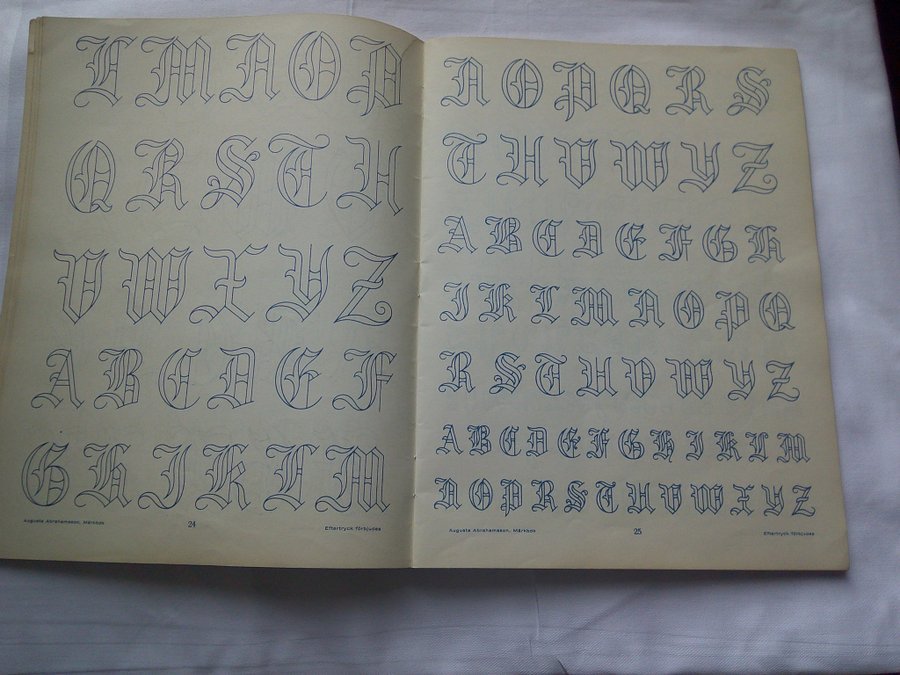 L M N O P
Q R S T U
V W X Y Z
A B C D E F
G H J K L M
Augusta Abrahamsson, Märkbok 24 Eftertryck förbjudes
N O P Q R S
T U V W Y Z
A B C D E F G H
J K L M N O P Q
R S T U V W Y Z
A B C D E F G H I K L M
N O P R S T U V W X Y Z
Augusta Abrahamsson, Märkbok 25 Eftertryck förbjudes